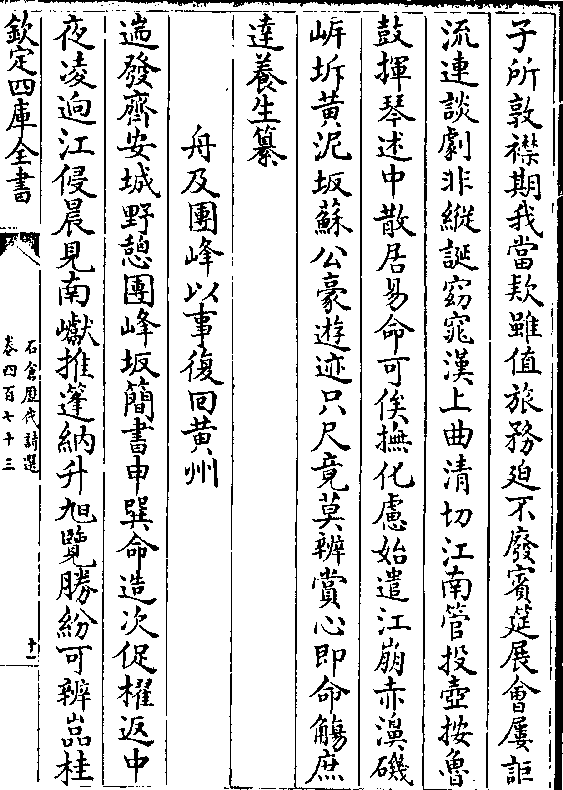 子所敦襟期我當欵雖值旅務廹不廢賓筵展㑹屢詎
流連談劇非縱誕窈窕漢上曲清切江南管投壺按魯
鼓揮琴述中散居易命可俟撫化慮始遣江崩赤濞磯
岸坼黄泥坂蘇公豪遊迹只尺竟莫辨賞心即命觴庶
達養生纂
舟及團峰以事復回黄州
遄發齊安城野憩團峰坂簡書申巽命造次促櫂返中
夜凌逈江侵晨見南巘推篷納升旭覽勝紛可辨嵓桂
欽定四庫全書
石倉歷代詩選
卷四百七十三
十一